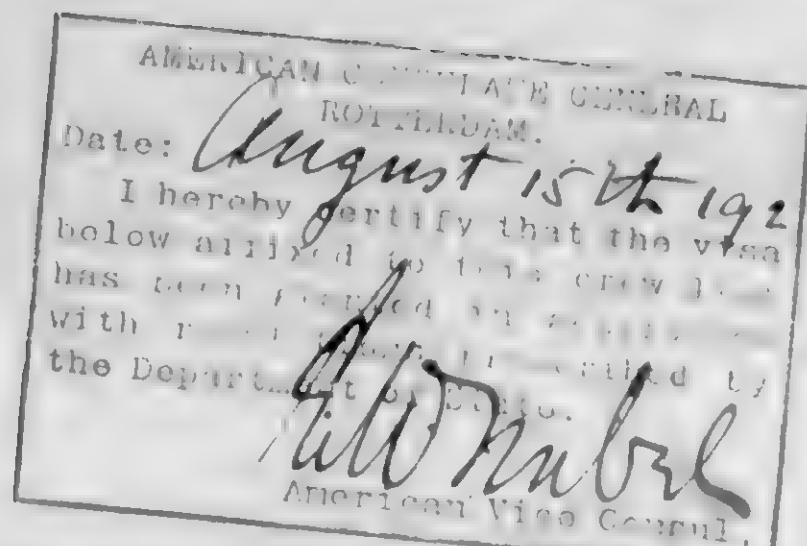 AMERICAN CONSULATE GENERAL
ROTTERDAM.
Date: August 15th 192
I hereby certify that the visa
below affixed to this crew list
has been granted in
with by
the Department of State.
American Vice Consul.